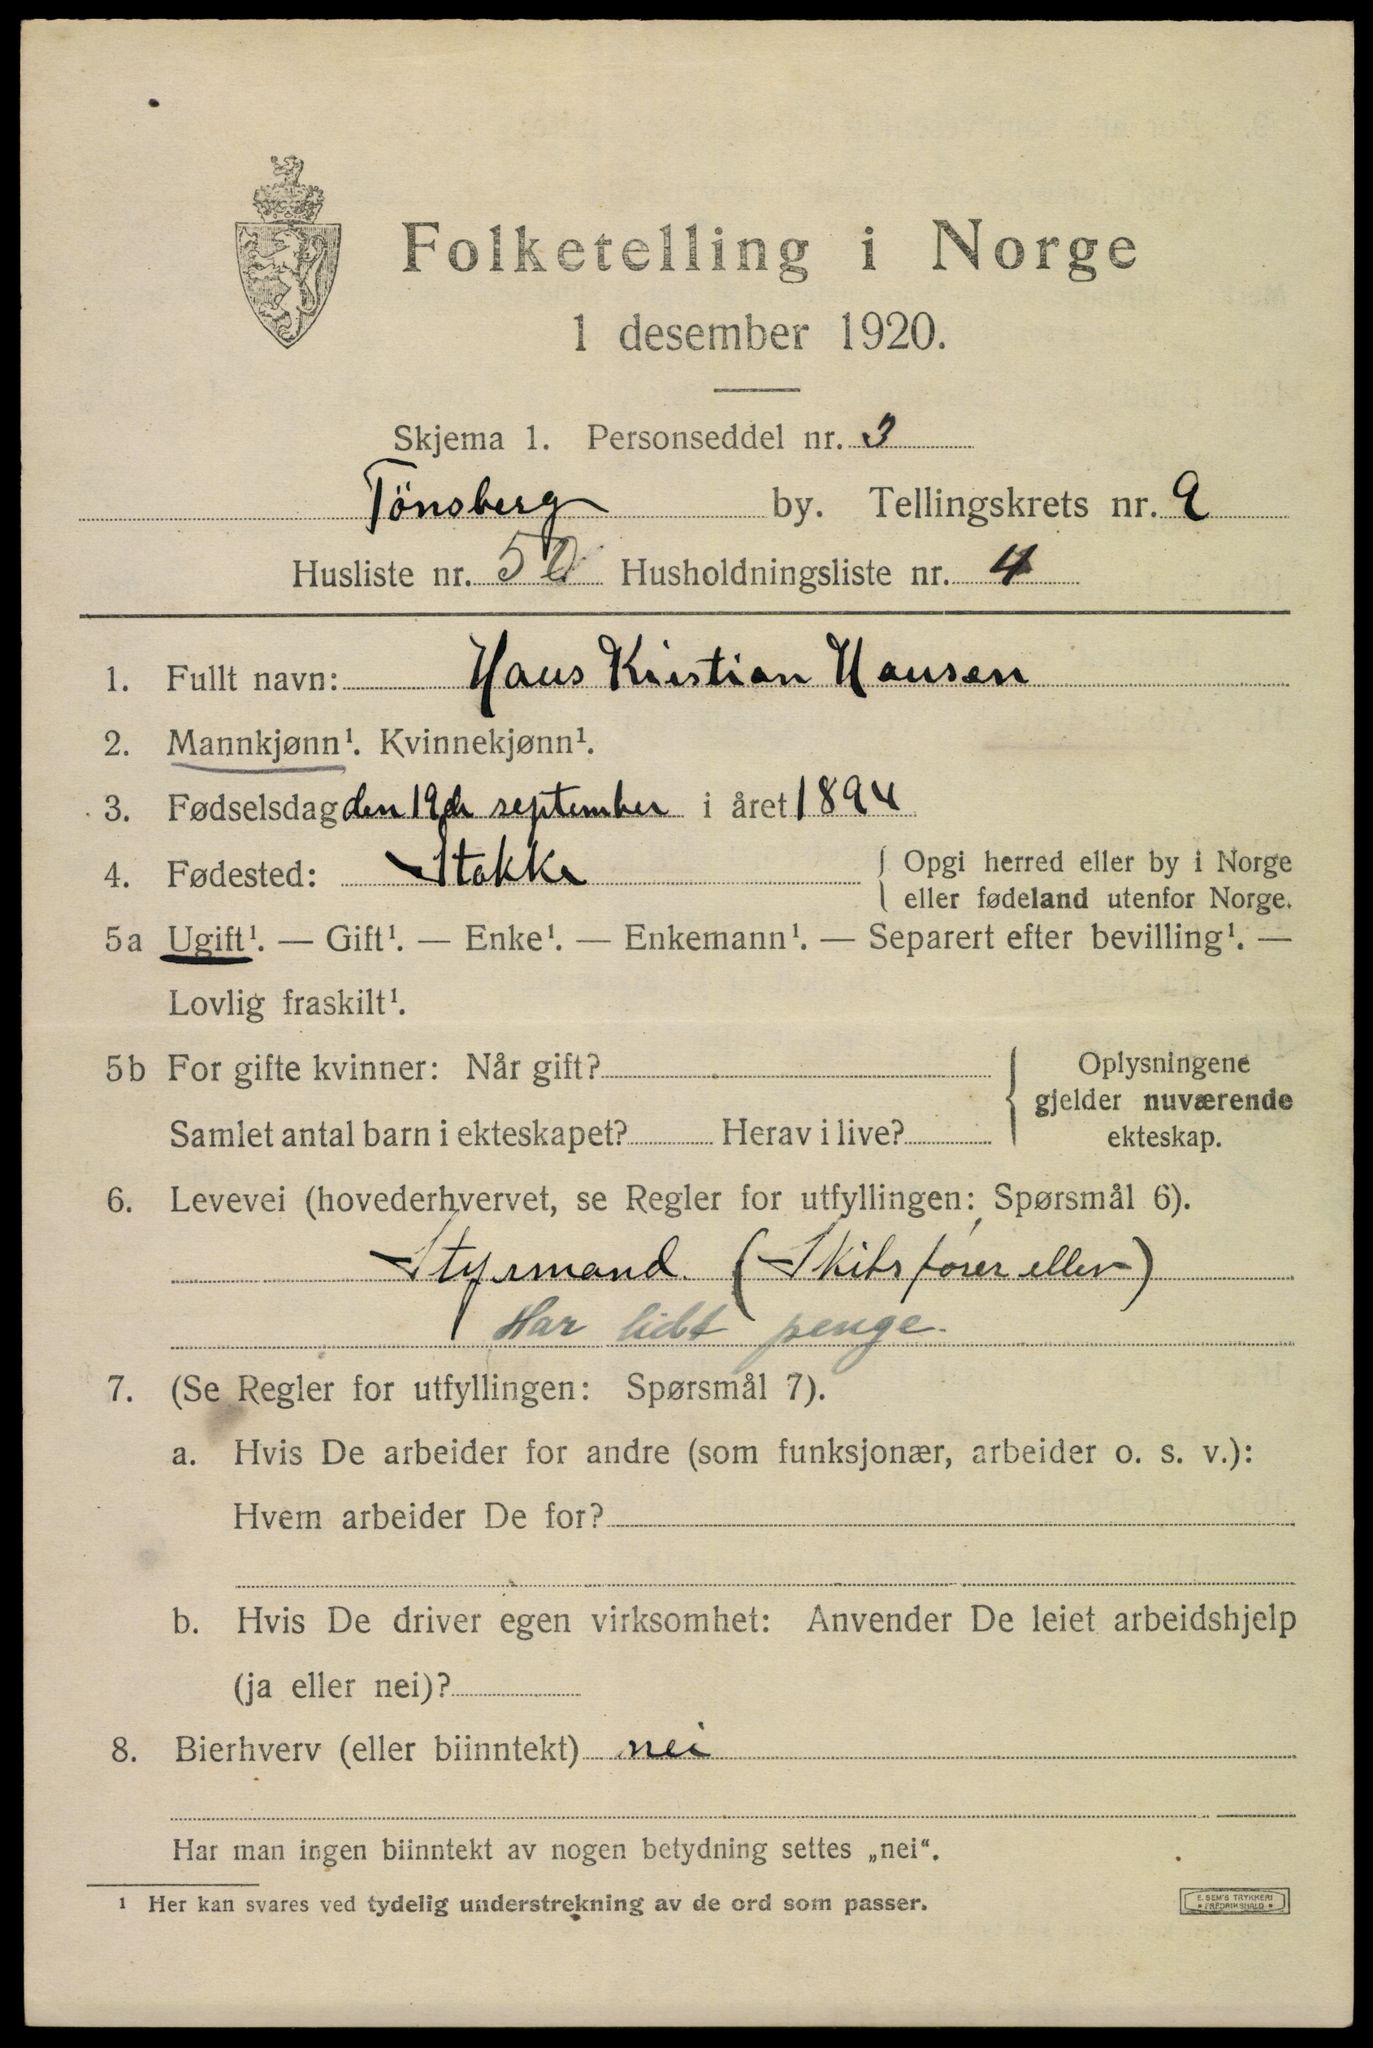 Folketelling i Norge
1 desember 1920.
Skjema 1. Personseddel nr. 3
Tönsberg by. Tellingskrets nr. 9
Husliste nr. 50 Husholdningsliste nr. 4
1. Fullt navn: Hans Kristian Hansen
2. Mannkjønn¹. Kvinnekjønn¹.
3. Fødselsdag den 19de september i året 1894
4. Fødested: Stokke
{ Opgi herred eller by i Norge
eller fødeland utenfor Norge.
5a Ugift¹. — Gift¹. — Enke¹. — Enkemann¹. — Separert efter bevilling¹. —
Lovlig fraskilt¹.
5b For gifte kvinner: Når gift?
Samlet antal barn i ekteskapet? Herav i live?
{ Oplysningene
gjelder nuværende
ekteskap.
6. Levevei (hovederhvervet, se Regler for utfyllingen: Spørsmål 6).
Styrmand. (Skibsfører ellev)
Har lidt penge.
7. (Se Regler for utfyllingen: Spørsmål 7).
a. Hvis De arbeider for andre (som funksjonær, arbeider o. s. v.):
Hvem arbeider De for?
b. Hvis De driver egen virksomhet: Anvender De leiet arbeidshjelp
(ja eller nei)?
8. Bierhverv (eller biinntekt) nei
Har man ingen biinntekt av nogen betydning settes „nei“.
¹ Her kan svares ved tydelig understrekning av de ord som passer.
E. SEM'S TRYKKERI
* FREDRIKSHALD *